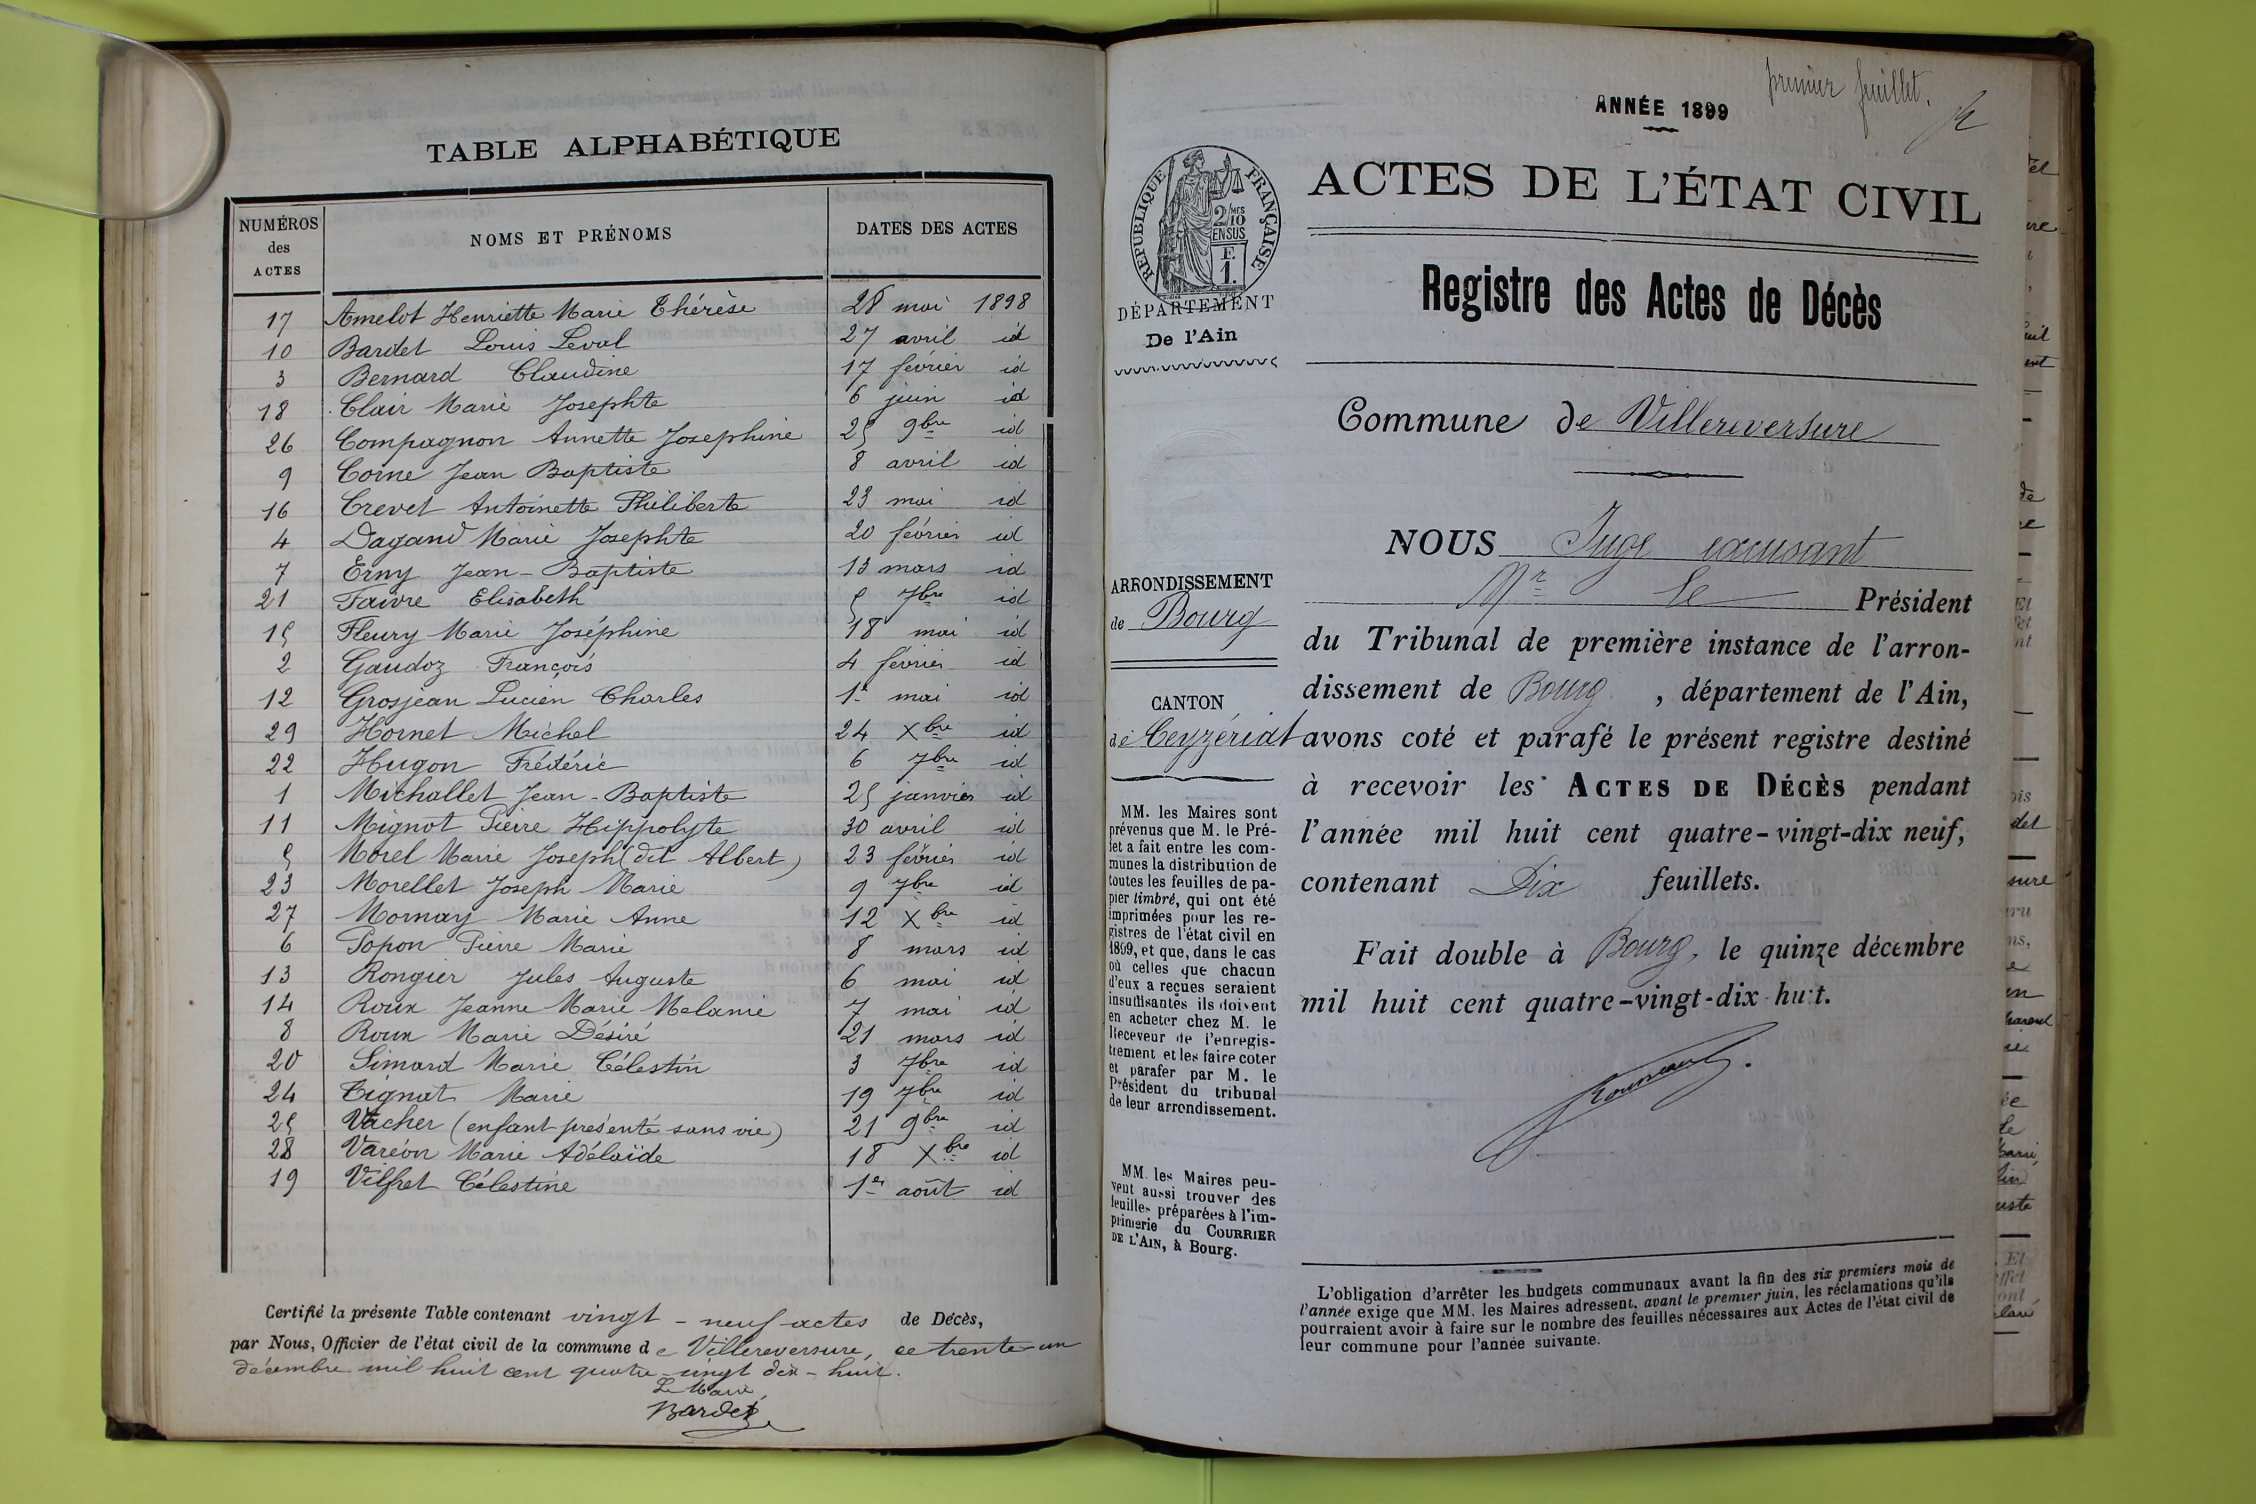 TABLE ALPHABÉTIQUE
NUMÉROS des ACTES | NOMS ET PRÉNOMS | DATES DES ACTES
17 Amelot Henriette Marie Thérèse 28 mai 1898
10 Bardet Louis Léval 27 avril id
3 Bernard Claudine 17 février id
18 Clair Marie Josephte 6 juin id
26 Compagnon Annette Josephine 25 9bre id
9 Corne Jean Baptiste 8 avril id
16 Crevet Antoinette Philiberte 23 mai id
4 Dagand Marie Josephte 20 février id
7 Erny Jean-Baptiste 13 mars id
21 Faivre Elisabeth 5 7bre id
15 Fleury Marie Joséphine 18 mai id
2 Gaudoz François 4 février id
12 Grosjean Lucien Charles 1er mai id
29 Hornet Michel 24 Xbre id
22 Hugon Frédéric 6 7bre id
1 Michallet Jean-Baptiste 25 janvier id
11 Mignot Pierre Hippolyte 30 avril id
5 Morel Marie Joseph (dit Albert) 23 février id
23 Morellet Joseph Marie 9 7bre id
27 Mornay Marie Anne 12 Xbre id
6 Popon Pierre Marie 8 mars id
13 Rongier Jules Auguste 6 mai id
14 Roux Jeanne Marie Melanie 7 mai id
8 Roux Marie Désiré 21 mars id
20 Simard Marie Célestin 3 7bre id
24 Tignat Marie 19 7bre id
25 Vacher (enfant présenté sans vie) 21 9bre id
28 Varéon Marie Adélaïde 18 Xbre id
19 Vilfret Célestine 1er août id
Certifié la présente Table contenant vingt-neuf actes de Décès,
par Nous, Officier de l'état civil de la commune de Villereversure, ce trente-un
décembre mil huit cent quatre-vingt dix-huit.
Le Maire
Bardet
premier feuillet.
ANNÉE 1899
ACTES DE L'ÉTAT CIVIL
RÉPUBLIQUE FRANÇAISE
2/10mes
EN SUS
F.
1.
DÉPARTEMENT
De l'Ain
Registre des Actes de Décès
Commune de Villereversure
ARRONDISSEMENT
de Bourg
CANTON
de Ceyzériat
MM. les Maires sont
prévenus que M. le Pré-
fet a fait entre les com-
munes la distribution de
toutes les feuilles de pa-
pier timbré, qui ont été
imprimées pour les re-
gistres de l'état civil en
1899, et que, dans le cas
où celles que chacun
d'eux a reçues seraient
insuffisantes ils doivent
en acheter chez M. le
Receveur de l'enregis-
trement et les faire coter
et parafer par M. le
Président du tribunal
de leur arrondissement.
MM. les Maires peu-
vent aussi trouver des
feuilles préparées à l'im-
primerie du COURRIER
DE L'AIN, à Bourg.
NOUS Juge excusant
Mr le Président
du Tribunal de première instance de l'arron-
dissement de Bourg, département de l'Ain,
avons coté et parafé le présent registre destiné
à recevoir les ACTES DE DÉCÈS pendant
l'année mil huit cent quatre-vingt-dix neuf,
contenant Dix feuillets.
Fait double à Bourg, le quinze décembre
mil huit cent quatre-vingt-dix-huit.
L'obligation d'arrêter les budgets communaux avant la fin des six premiers mois de
l'année exige que MM. les Maires adressent, avant le premier juin, les réclamations qu'ils
pourraient avoir à faire sur le nombre des feuilles nécessaires aux Actes de l'état civil de
leur commune pour l'année suivante.